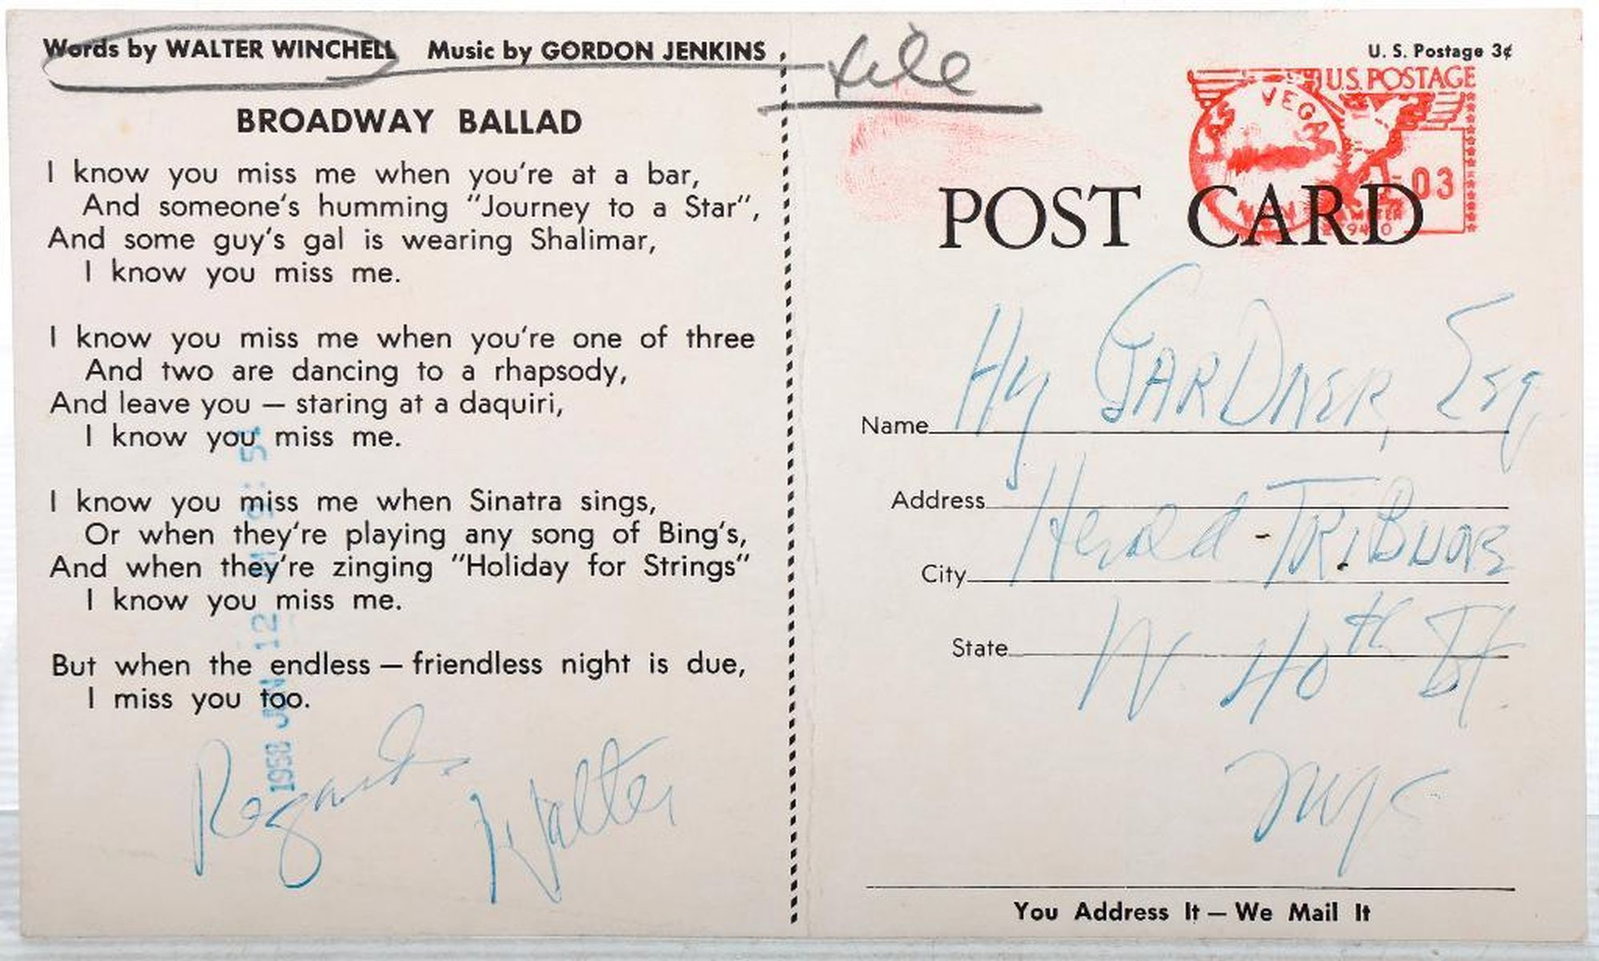 Words by WALTER WINCHELL Music by GORDON JENKINS
file
BROADWAY BALLAD
I know you miss me when you're at a bar,
And someone's humming "Journey to a Star",
And some guy's gal is wearing Shalimar,
I know you miss me.
I know you miss me when you're one of three
And two are dancing to a rhapsody,
And leave you — staring at a daquiri,
I know you miss me.
I know you miss me when Sinatra sings,
Or when they're playing any song of Bing's,
And when they're zinging "Holiday for Strings"
I know you miss me.
But when the endless — friendless night is due,
I miss you too.
Regards Walter
1958 JUN 12 9:51
U. S. Postage 3¢
U.S. POSTAGE
VEGAS
03
POST CARD
Name Hy GARDNER, Esq.
Address
Herald-TRIBUNE
City
State
W 40th St.
NYC
You Address It — We Mail It